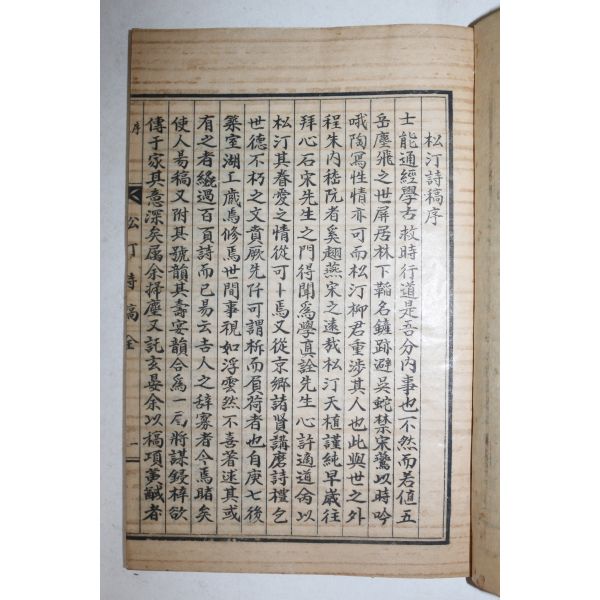 松汀詩稿序
士能通經學古救時行道是吾分內事也不然而若値五
岳塵飛之世屏居林下韜名鏟跡避吳蛇禁宋鷺以時吟
哦陶寫性情亦可而松汀柳君重涉其人也此與世之外
程朱內嵇阮者奚趐燕宋之遠哉松汀天植謹純早歲往
拜心石宋先生之門得聞爲學眞詮先生心許適道命以
松汀其眷愛之情從可卜焉又從京鄉諸賢講磨詩禮乞
世德不朽之文賁厥先阡可謂析而負荷者也自庚七後
築室湖上歲焉修焉世間事視如浮雲然不喜著述其或
有之者纔過百頁詩而已易云吉人之辭寡者今焉睹矣
使人昜稿又附其號韻其壽宴韻合爲一局將謀鋟梓欲
傳于家其意深矣属余掃塵又託玄晏余以槁項黃馘者
序
松汀詩稿全
一